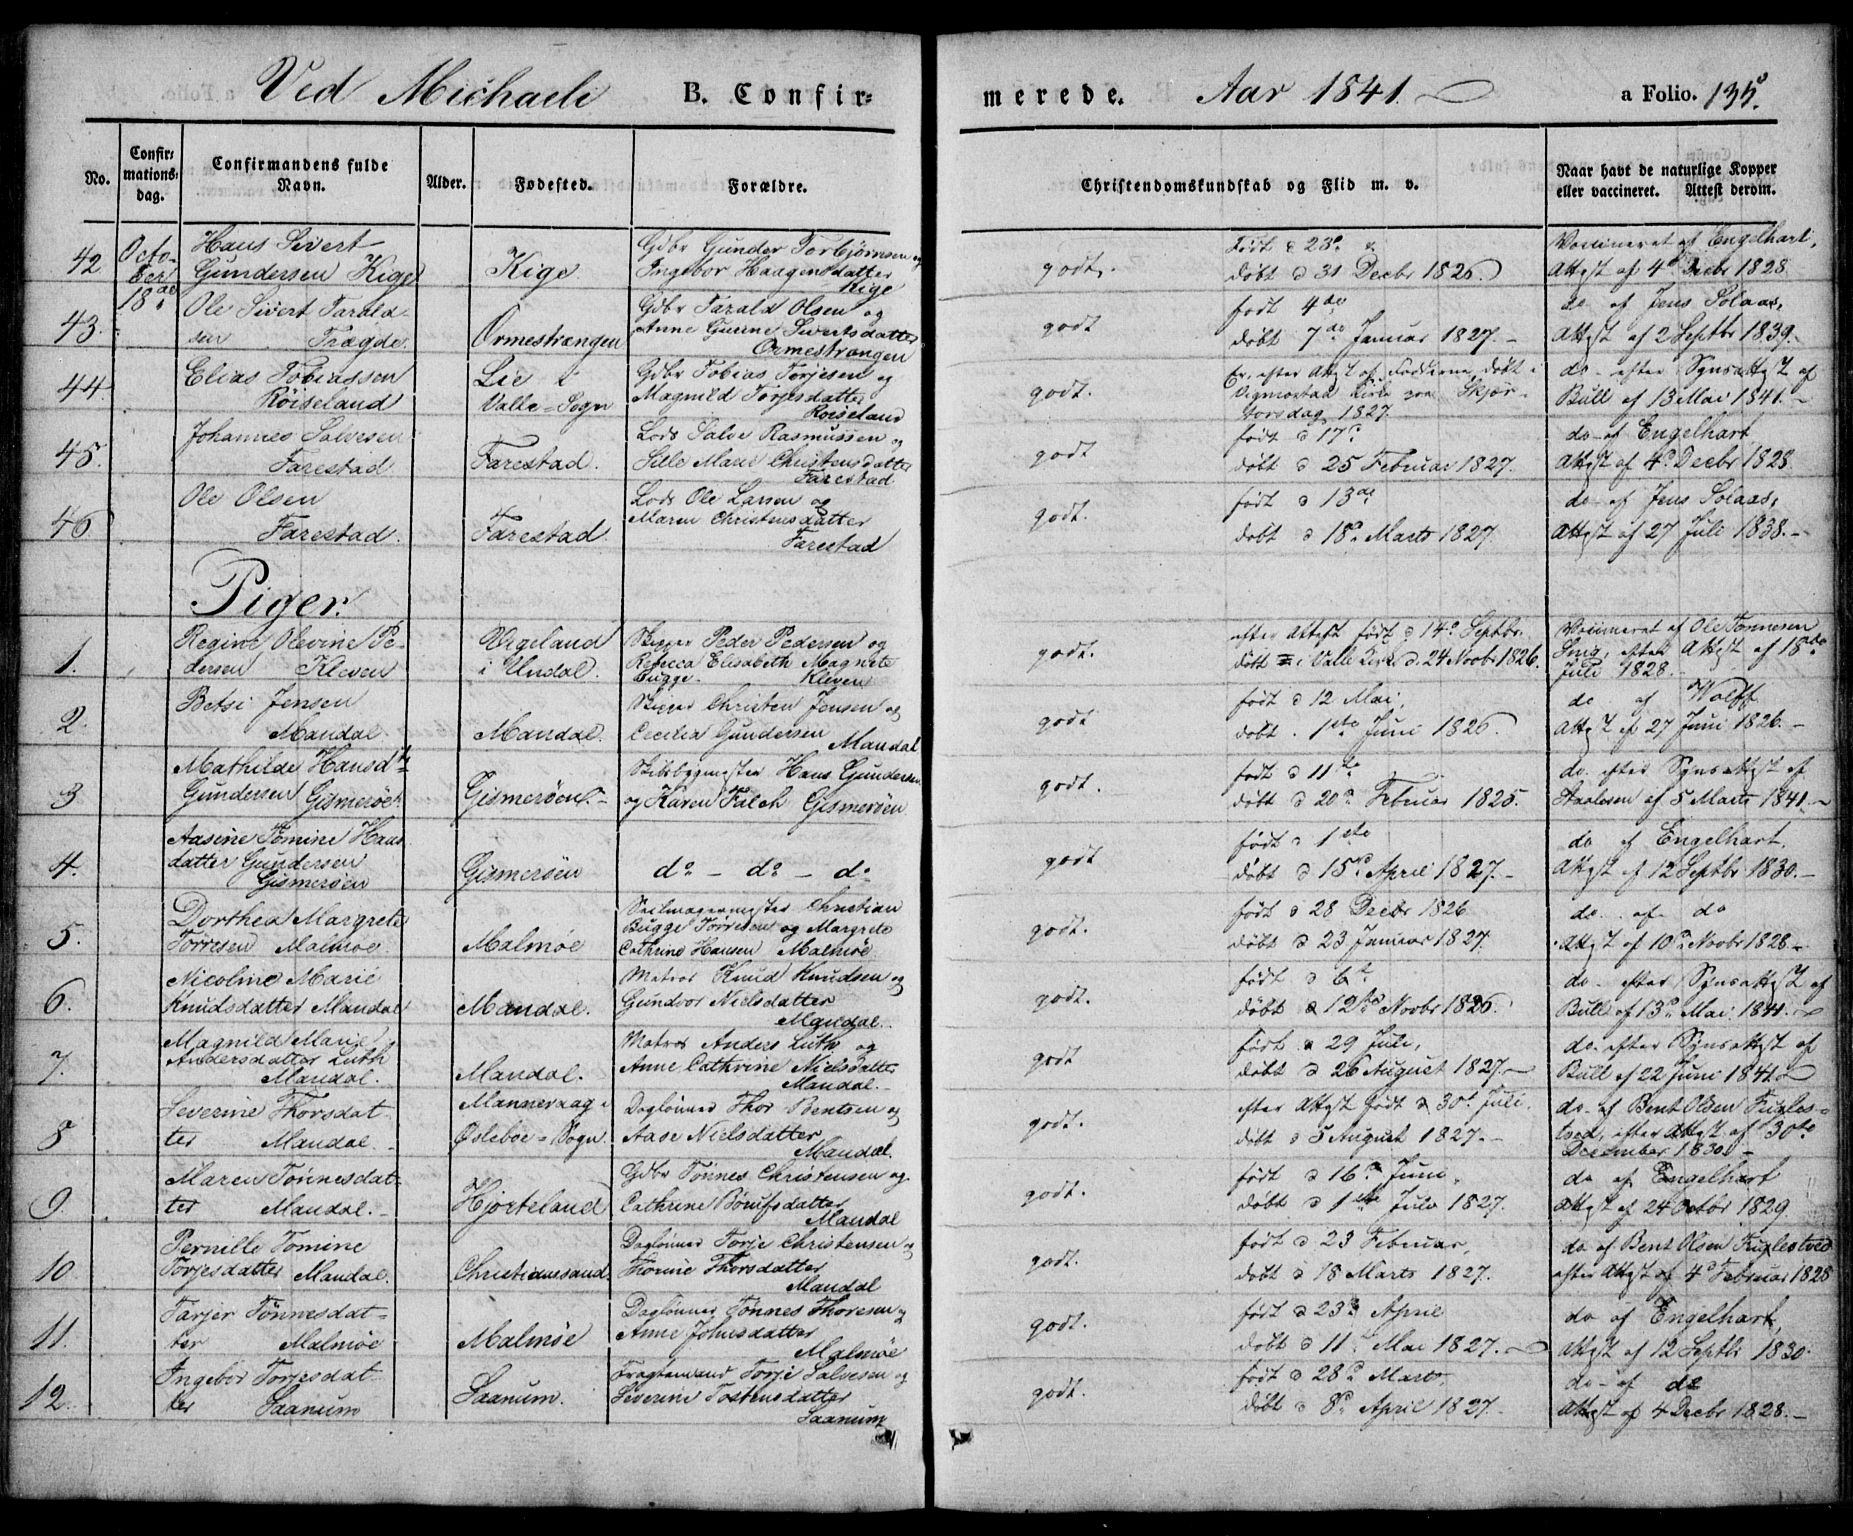 Ved Michaeli B. Confir= merede. Aar 1841. a Folio. 135.
No.
Confir=
mations=
dag.
Confirmandens fulde
Navn.
Alder.
Fødested.
Forældre.
Christendomskundskab og Flid m. v.
Naar havt de naturlige Kopper
eller vaccineret. Attest derom.
42
Octo-
ber
18de
Hans Sivert
Gundersen Kige
Kige
Gdbr Gunder Torbjørnsen og
Ingebor Haagensdatter
Kige
godt.
født d 23de
døbt d 31 Decbr 1826.
Vaccineret af Engelhart,
Attest af 4de Decbr 1828.
43.
Ole Sivert Tarald-
sen Trægde
Ormestrangen
Gdbr Tarald Olsen og
Anne Gurine Sivertsdatter
Ormestrangen
godt
født 4de
døbt 7de Januar 1827.-
do af Jens Solaas,
Attest af 2 Septbr 1839.-
44.
Elias Tobiassen
Røiseland
Lie i
Valle-Sogn
Gdbr Tobias Torjesen og
Magnild Torjesdatter
Røiseland
godt.
Er efter Attest af Fødderne døbt i
Vigmostad Kirke paa Skjær
torsdag 1827.
do- efter Synsattest af
Bull af 13 Mai 1841.-
45.
Johannes Salvesen
Farestad
Farestad.
Lods Salve Rasmussen og
Sille Marie Christensdatter
Farestad
godt
født d 17de
døbt d 25 Februar 1827.
do-af Engelhart
Attest af 4de Decbr 1828.
46
Ole Olsen
Farestad.
Farestad.
Lods Ole Larsen og
Maren Christensdatter
Farestad
godt.
født d 13de
døbt d 18de Marts 1827.
do- af Jens Solaas,
Attest af 27 Juli 1838.-
Piger.
1.
Regine Olevine Pe-
dersen Kleven
Vigeland
i Undal.
Skipper Peder Pedersen og
Rebecca Elisabeth Magrete
Bugge. Kleven
godt.
efter Attest født d 14de Septbr.
døbt i Valle Kirke d. 24 Novbr 1826.
Vaccineret af Ole Tønnesen
Ime, efter Attest af 18de
Juli 1828.
2.
Betsi Jensen
Mandal.
Mandal.
Skipper Christen Jensen og
Cecilia Gundersen
Mandal
godt
født d 12 Mai,
døbt. 1ste Juni 1826.
do af Wolff
Attest af 27 Juni 1826.-
3
Mathilde Hansdtr
Gundersen Gismerøen
Gismerøen.-
Skibsbygmester Hans Gundersen
og Karen Falch Gismerøen
godt.
født d 11te
døbt d 20de Februar 1825.
do. efter Synsattest af
Staalesen af 5 Marts 1841.-
4.
Aasine Tomine Hans
datter Gundersen
Gismerøen
Gismerøen
do - do - do
godt
født d 1ste
døbt d 15de April 1827.-
do af Engelhart.
Attest af 12 Septbr 1830.-
5.
Dorthea Margrete
Tørresen Malmøe.
Malmøe
Seilmagermester Christian
Bugge Tørresen og Margrete
Cathrine Hansen Malmøe
godt.
født d 28 Decbr 1826
døbt d 23 Januar 1827.
do. af do
Attest af 10de Novbr 1828.-
6.
Nicoline Marie
Knudsdatter Mandal
Mandal.
Matros Knud Knudsen og
Gundvor Nielsdatter
Mandal.
godt.
født d 6te
døbt d 12te Novbr 1826.
do- efter Synsattest af
Bull af 13de Mai 1841.-
7.
Magnild Marie
Andersdatter Luth
Mandal.
Mandal.
Matros Anders Luth og
Anne Cathrine Nielsdatter
Mandal.-
godt
født d 29 Juli,
døbt d 26 August 1827.-
do. efter Synsattest af
Bull af 22 Juni 1841.-
8
Severine Thorsdat-
ter Mandal.
Manneraag i
Øslebøe-Sogn.
Daglønner Thor Bentsen og
Aase Nielsdatter
Mandal.
godt.
efter Attest født d 30te Juli,
døbt d 5 August 1827.-
do- af Bent Olsen Fuglest-
tved, efter Attest af 30te
December 1830.-
9.
Maren Tønnesdat-
ter Mandal.-
Hjorteland
Gdbr Tønnes Christensen og
Cathrine Børufsdatter
Mandal
godt.
født d 16de Juni,
døbt d 1ste Juli 1827.
do af Engelhart
Attest af 24 Octbr 1829.
10
Pernille Tomine
Torjesdatter Mandal.
Christianssand.
Daglønner Torje Christensen og
Thomine Thorsdatter
Mandal
godt.
født d 23 Februar,
døbt d 18 Marts 1827.
do af Bent Olsen Fuglestved
efter Attest af 4de Februar 1828
11.
Tarjer Tønnesdat-
ter Malmøe
Malmøe
Daglønner Tønnes Thoresen og
Anne Johnsdatter
Malmøe
godt.
født d 23de April
døbt d 11te Mai 1827.-
do af Engelhart,
Attest af 12 Septbr 1830.
12.
Ingebor Torjesdat-
ter Saanum
Saanum.
Fragtemand Torje Salvesen og
Severine Tostensdatter
Saanum
godt.
født d 28de Marts,
døbt d 8de April 1827.-
do- af do
Attest af 4 Decbr 1828.-